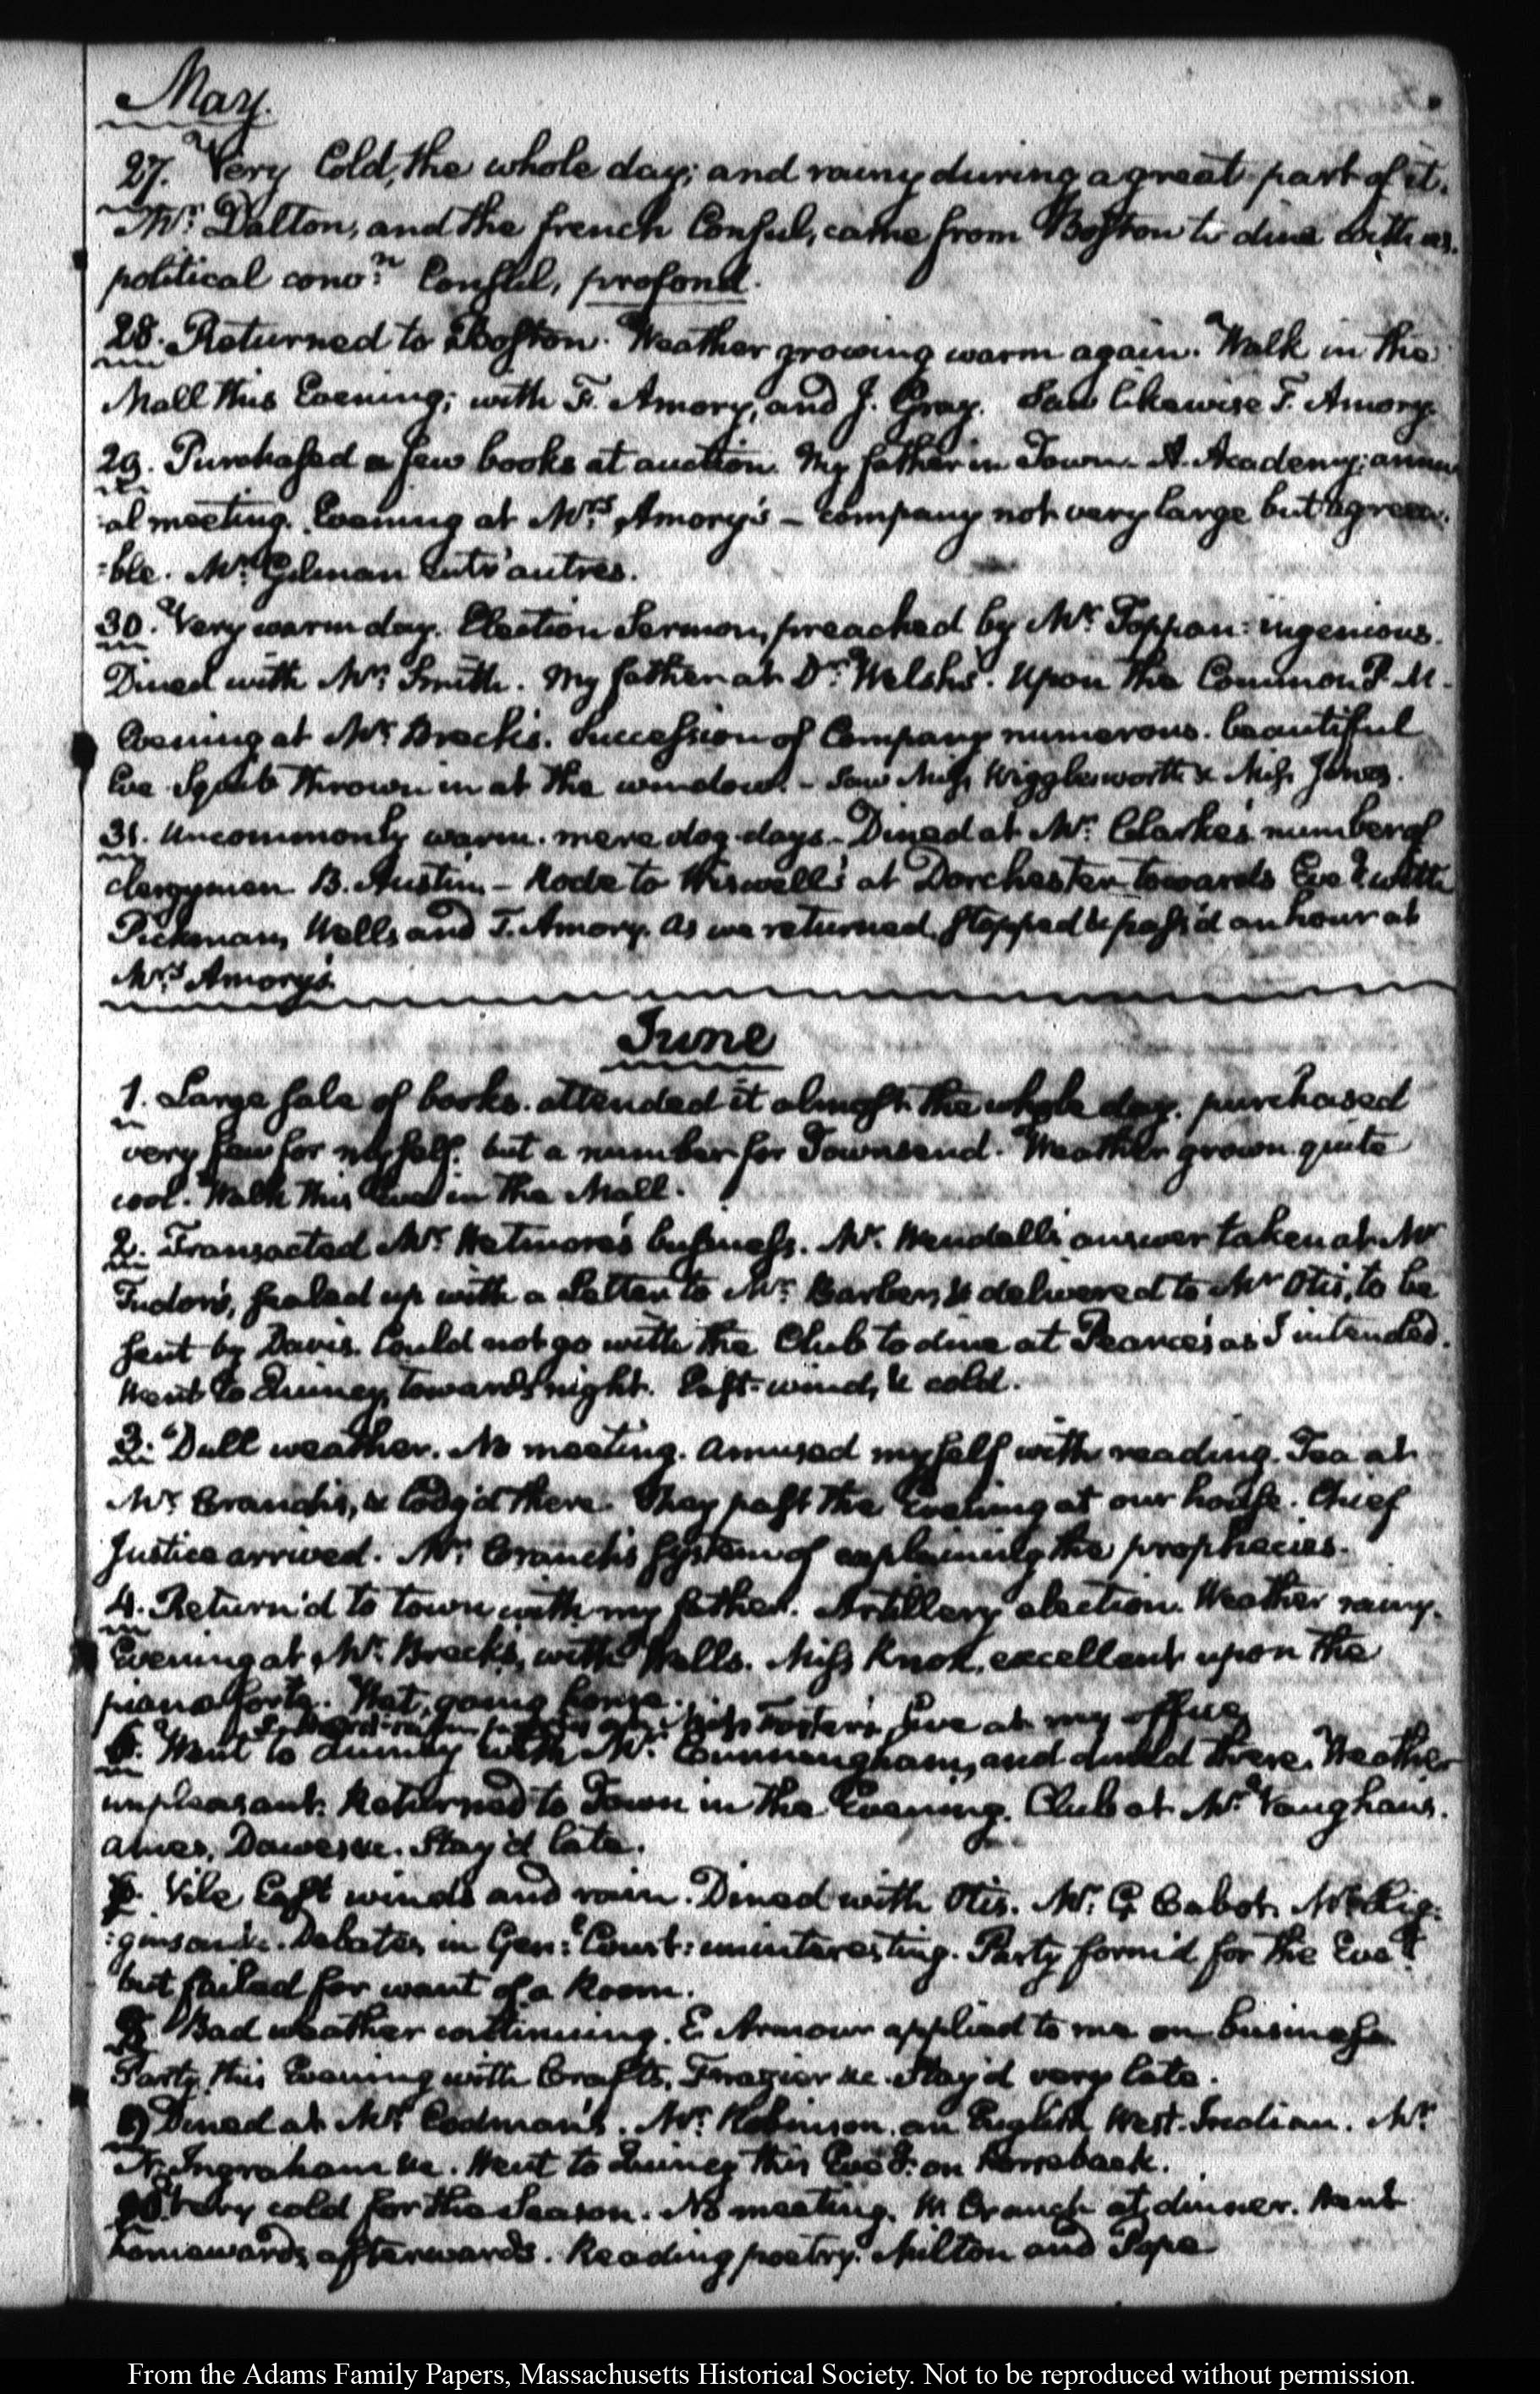 May.
27. Very Cold, the whole day; and rainy during a great part of it.
Mr. Dalton, and the french Consul, came from Boston to dine with us.
political convn. Consul, profond.
28. Returned to Boston. Weather growing warm again. Walk in the
Mall this Evening; with F. Amory, and J. Gray. Saw likewise T. Amory.
29. Purchased a few books at auction. My father in Town. A. Academy; annu
:al meeting. Evening at Mrs. Amory's – company not very large but agreea.
:ble. Mr. Gilman entr'autres.
30. Very warm day. Election Sermon, preached by Mr. Toppan: ingenious.
Dined with Mr. Smith. My father at Dr. Welsh's. Upon the Common P.M.
Evening at Mr. Breck's. Succession of Company numerous. beautiful
Eve. Squib thrown in at the window. – Saw Miss Wigglesworth & Miss Jones.
31. Uncommonly warm. mere dog-days. Dined at Mr. Clarke's number of
clergymen B. Austin. – Rode to Wiswell's at Dorchester towards Eveg. with
Pickman, Wells and T. Amory. As we returned, stopped & pass'd an hour at
Mrs. Amory's.
June
1. Large sale of books. attended it almost the whole day. purchased
very few for myself. but a number for Townsend. Weather grown quite
cool. Walk this Eve in the Mall.
2. Transacted Mr. Wetmore's business. Mr. Wendell's answer taken at Mr
Tudor's, sealed up with a Letter to Mr. Barber, & delivered to Mr Otis, to be
sent by Davis. Could not go with the Club to dine at Pearce's as I intended.
Went to Quincy, towards night. East-wind, & cold.
3. Dull weather. No meeting. Amused myself with reading. Tea at
Mr. Cranch's, & lodg'd there. They past the Evening at our house. Chief
Justice arrived. Mr. Cranch's system of explaining the prophecies.
4. Return'd to town with my father. Artillery election. Weather rainy.
Evening at Mr. Breck's, with Wells. Miss Knox, excellent upon the
piano forte. Wet, going home.
at Miss Foster's, Eve at my office
6. Went to Quincy with Mr. Cunningham, and dined there. Weather
unpleasant. Returned to Town in the Evening. Club at Mr. Vaughan's.
Ames, Dawes &c. Stay'd late.
Vile East winds and rain. Dined with Otis. Mr. G Cabot. Mr. Hig:
:ginson &c. Debates in Genl. Court: uninteresting. Party form'd for the Eveg.
but failed for want of a Room.
Bad weather continuing. E. Armour applied to me on business
Party this Evening with Crafts, Frazier &c. Stay'd very late.
9) Dined at Mr. Codman's. Mr. Robinson, an English West-Indian. Mr.
N. Ingraham &c. Went to Quincy this Eveg. on Horseback.
10. Very cold for the Season. No meeting. W. Cranch at dinner. Went
homewards afterwards. Reading poetry. Milton and Pope
From the Adams Family Papers, Massachusetts Historical Society. Not to be reproduced without permission.